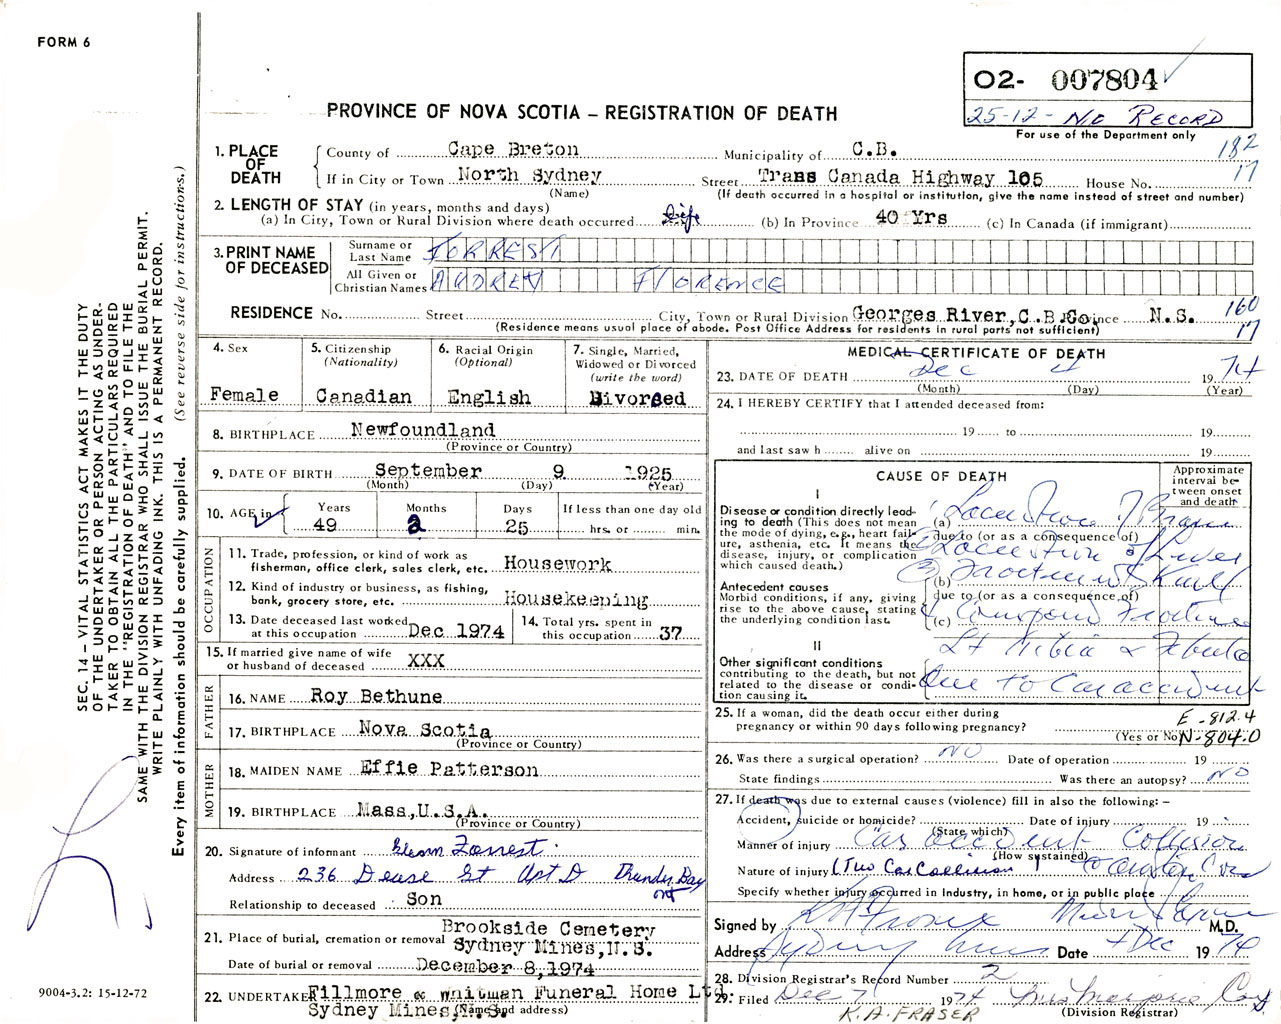 FORM 6
O2- 007804
25-12- NO RECORD
For use of the Department only
PROVINCE OF NOVA SCOTIA – REGISTRATION OF DEATH
182
17
1. PLACE OF DEATH
County of Cape Breton Municipality of C.B.
If in City or Town North Sydney Street Trans Canada Highway 105 House No.
(Name) (If death occurred in a hospital or institution, give the name instead of street and number)
2. LENGTH OF STAY (in years, months and days)
(a) In City, Town or Rural Division where death occurred life (b) In Province 40 Yrs (c) In Canada (if immigrant)
3. PRINT NAME OF DECEASED
Surname or Last Name FORREST
All Given or Christian Names AUDREY FLORENCE
RESIDENCE No. Street City, Town or Rural Division Georges River, C.B.Co. Province N.S. 160
17
(Residence means usual place of abode. Post Office Address for residents in rural parts not sufficient)
4. Sex Female
5. Citizenship (Nationality) Canadian
6. Racial Origin (Optional) English
7. Single, Married, Widowed or Divorced (write the word) Divorced
8. BIRTHPLACE Newfoundland
(Province or Country)
9. DATE OF BIRTH September 9 1925
(Month) (Day) (Year)
10. AGE in Years 49 Months 2 Days 25 If less than one day old hrs. or min.
OCCUPATION
11. Trade, profession, or kind of work as fisherman, office clerk, sales clerk, etc. Housework
12. Kind of industry or business, as fishing, bank, grocery store, etc. Housekeeping
13. Date deceased last worked at this occupation Dec 1974
14. Total yrs. spent in this occupation 37
15. If married give name of wife or husband of deceased XXX
FATHER
16. NAME Roy Bethune
17. BIRTHPLACE Nova Scotia
(Province or Country)
MOTHER
18. MAIDEN NAME Effie Patterson
19. BIRTHPLACE Mass,U.S.A.
(Province or Country)
20. Signature of informant Glenn Forrest
Address 236 Dease St Apt D Thunder Bay
ont
Relationship to deceased Son
21. Place of burial, cremation or removal Brookside Cemetery
Sydney Mines,N.S.
Date of burial or removal December 8,1974
22. UNDERTAKER Fillmore & Whitman Funeral Home Ltd.
Sydney Mines,N.S. (Name and address)
MEDICAL CERTIFICATE OF DEATH
23. DATE OF DEATH Dec 4 1974
(Month) (Day) (Year)
24. I HEREBY CERTIFY that I attended deceased from:
19 to 19
and last saw h alive on 19
CAUSE OF DEATH
Approximate interval between onset and death
I
Disease or condition directly leading to death (This does not mean the mode of dying, e.g., heart failure, asthenia, etc. It means the disease, injury, or complication which caused death.)
(a) Laceration of Brain
due to (or as a consequence of)
Laceration of Liver
Antecedent causes
Morbid conditions, if any, giving rise to the above cause, stating the underlying condition last.
(b) Fracture of Skull
due to (or as a consequence of)
(c) Compound Fracture
Lt Tibia & Fibula
II
Other significant conditions contributing to the death, but not related to the disease or condition causing it.
Due to Car accident
25. If a woman, did the death occur either during pregnancy or within 90 days following pregnancy?
(Yes or No)
E-812.4
N-804.0
26. Was there a surgical operation? NO Date of operation 19
State findings Was there an autopsy? NO
27. If death was due to external causes (violence) fill in also the following: –
Accident, suicide or homicide? Date of injury 19
(State which)
Manner of injury Car accident Collision
(How sustained)
Nature of injury (Two Car Collision)
Specify whether injury occurred in industry, in home, or in public place
Signed by M.D.
Address Sydney Mines Date 4 Dec 1974
28. Division Registrar's Record Number 2
29. Filed Dec 7 1974 Mrs Marjorie Cox
(Division Registrar)
K.A. FRASER
SEC. 14 – VITAL STATISTICS ACT MAKES IT THE DUTY
OF THE UNDERTAKER OR PERSON ACTING AS UNDER-
TAKER TO OBTAIN ALL THE PARTICULARS REQUIRED
IN THE "REGISTRATION OF DEATH" AND TO FILE THE
SAME WITH THE DIVISION REGISTRAR WHO SHALL ISSUE THE BURIAL PERMIT.
WRITE PLAINLY WITH UNFADING INK. THIS IS A PERMANENT RECORD.
Every item of information should be carefully supplied. (See reverse side for instructions.)
9004-3.2: 15-12-72